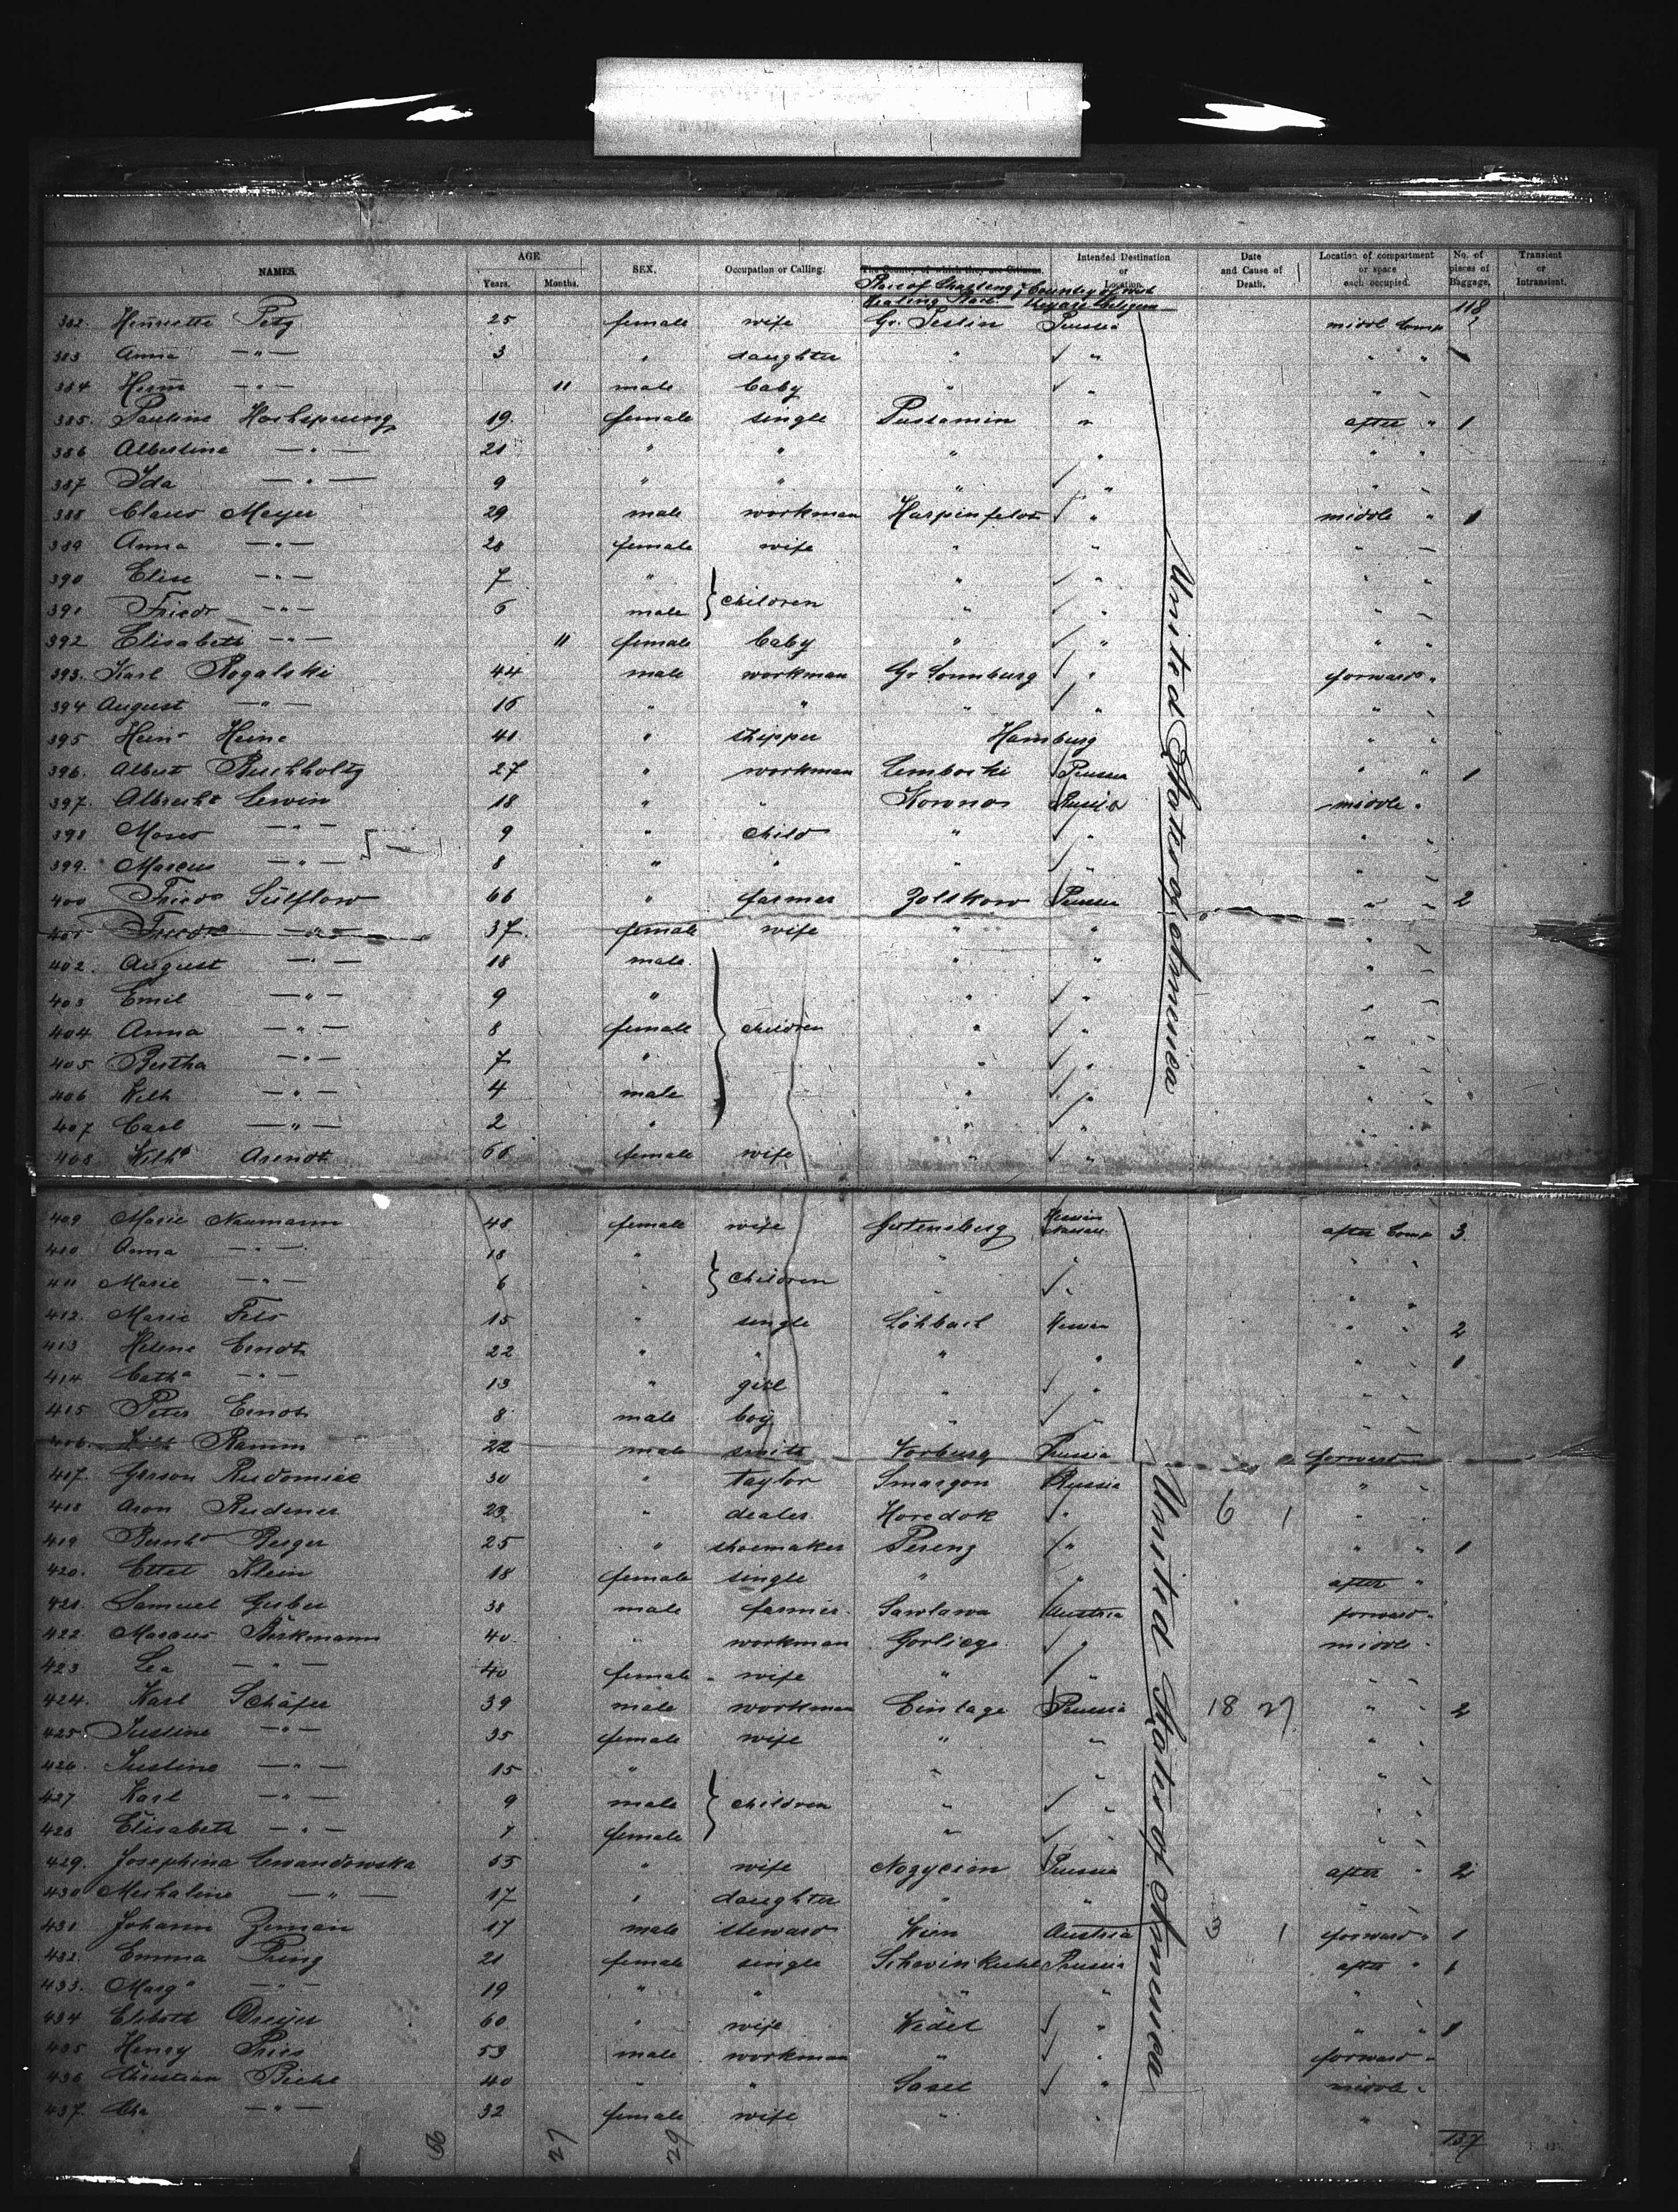 NAMES. AGE Years. Months. SEX. Occupation or Calling. The Country of which they are Citizens. Intended Destination or Location. Date and Cause of Death. Location of compartment or space each occupied. No. of pieces of Baggage. Transient or Intransient.
118
382 Henriette Petz 25 female wife Gr. Sestin Prussia middl Comp
383 Anna —"— 3 " daughter " " " " 1
384 Herm —"— 11 male baby " " " "
385. Pauline Hochsprung 19 female single Pustamin " after " 1
386 Albertine —"— 21 " " " " " "
387 Ida —"— 9 " " " " "
388 Claus Meyer 29 male workman Harpinfeld " middle " 1
389 Anna —"— 28 female wife " " " "
390 Elise —"— 7 " " " " "
391 Friedr —"— 6 male children " " " "
392 Elisabeth —"— 11 female baby " " " "
393. Karl Rogalski 44 male workman Gr Sonnburg " forward "
394 August —"— 16 " " " " " "
395 Hein Heine 41 " skipper Hamburg " "
396. Albert Buchholtz 27 " workman Lemboski Prussia " " 1
397. Albrecht Lewin 18 " " Kownos Russia middle "
398 Moses —"— 9 " child " " "
399. Marcus —"— 8 " " " " " "
400 Friedr Sülflow 66 " farmer Zolskow Prussia " " 2
401 Friedr —"— 37 female wife " " " "
402. August —"— 18 male " " " "
403 Emil —"— 9 " " " " "
404 Anna —"— 8 female children " " " "
405 Bertha —"— 7 " " " " "
406 Wilh —"— 4 male " " " "
407 Carl —"— 2 " " " " "
408 Wilhe Arendt 66 female wife " " " "
United States of America
409 Marie Naumann 48 female wife Gutensberg Hessen Nassau after Comp 3
410 Anna —"— 18 " " " "
411 Marie —"— 6 " children " " " "
412. Marie Fels 15 " single Löhbach Hessen " " 2
413 Helene Erndt 22 " " " " " " 1
414 Catha —"— 13 " girl " " " "
415 Peter Erndt 8 male boy " " " "
416. Ramm 22 male smith Vorburg Prussia forward
417. Gerson Rudomire 30 " taylor Smargon Russia " "
418 Aron Rudener 23 " dealer Horedok " 6 1 " "
419 Bernhd Berger 25 " shoemaker Pereng " " " 1
420. Ettel Klein 18 female single " " after "
421. Samuel Gerber 38 male farmer Sawlawa Austria forward "
422. Marcus Birkmann 40 " workman Gorlicze " middle "
423 Lea —"— 40 female wife " " " "
424. Karl Schäfer 39 male workman Einlage Prussia 18 27 " " 2
425 Justine —"— 35 female wife " " " "
426. Justine —"— 15 " " " " "
427 Karl —"— 9 male children " " " "
428 Elisabeth —"— 7 female " " " "
429. Josephina Lewandowska 55 " wife Nozycim Prussia after " 2
430 Michaline —"— 17 " daughter " " "
431 Johann Zeman 17 male steward Wien Austria 3 1 forward " 1
432. Emma Pring 21 female single Schevinkuhl Prussia after " 1
433. Marga —"— 19 " " " " "
434 Elsbeth Dreyer 60 " wife Wedel " " " 1
435 Henry Pries 53 male workman " " forward "
436 Christian Biehl 40 " " Sasel " middle "
437. Cha —"— 32 female wife " " "
United States of America
27 29 137